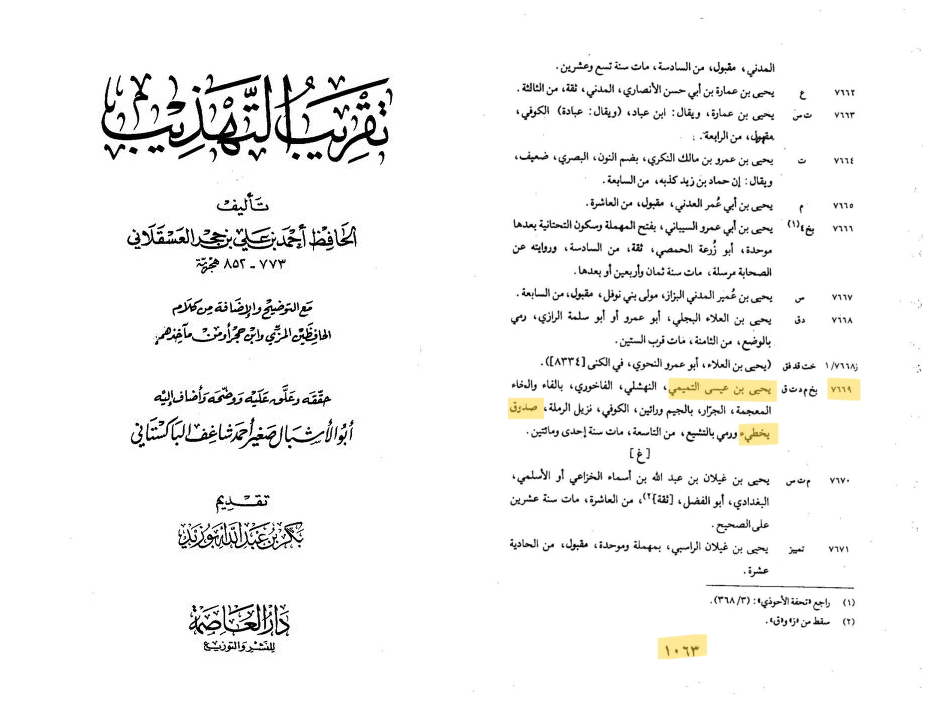 تقريب التهذيب
تأليف
الحافظ أحمد بن علي بن حجر العسقلاني
٧٧٣ - ٨٥٢ هجرية
مع التوضيح والإضافة من كلام
الحافظين المزي وابن حجر أو من مآخذهم
حققه وعلق عليه ووضحه وأضاف إليه
أبو الأشبال صغير أحمد شاغف الباكستاني
تقديم
بكر بن عبد الله أبو زيد
دار العاصمة
للنشر والتوزيع
المدني، مقبول، من السادسة، مات سنة تسع وعشرين.
٧٦٦٢ ع يحيى بن عمارة بن أبي حسن الأنصاري، المدني، ثقة، من الثالثة.
٧٦٦٣ ت س يحيى بن عمارة، ويقال: ابن عباد، (ويقال: عبادة) الكوفي،
مقبول، من الرابعة.
٧٦٦٤ ت يحيى بن عمرو بن مالك النكري، بضم النون، البصري، ضعيف،
ويقال: إن حماد بن زيد كذبه، من السابعة.
٧٦٦٥ م يحيى بن أبي عُمر العدني، مقبول، من العاشرة.
٧٦٦٦ بخ ٤(١) يحيى بن أبي عمرو السيباني، بفتح المهملة وسكون التحتانية بعدها
موحدة، أبو زُرعة الحمصي، ثقة، من السادسة، وروايته عن
الصحابة مرسلة، مات سنة ثمان وأربعين أو بعدها.
٧٦٦٧ س يحيى بن عُمير المدني البزاز، مولى بني نوفل، مقبول، من السابعة.
٧٦٦٨ د ق يحيى بن العلاء البجلي، أبو عمرو أو أبو سلمة الرازي، رمي
بالوضع، من الثامنة، مات قرب الستين.
ز٧٦٦٨/١ خت قد فق (يحيى بن العلاء، أبو عمرو النحوي، في الكنى [٨٣٣٤]).
٧٦٦٩ بخ م د ت ق يحيى بن عيسى التميمي، النهشلي، الفاخوري، بالفاء والخاء
المعجمة، الجرّار، بالجيم ورائين، الكوفي، نزيل الرملة، صدوق
يخطىء ورمي بالتشيع، من التاسعة، مات سنة إحدى ومائتين.
[غ]
٧٦٧٠ م ت س يحيى بن غيلان بن عبد الله بن أسماء الخزاعي أو الأسلمي،
البغدادي، أبو الفضل، [ثقة](٢)، من العاشرة، مات سنة عشرين
على الصحيح.
٧٦٧١ تمييز يحيى بن غيلان الراسبي، بمهملة وموحدة، مقبول، من الحادية
عشرة.
(١) راجع «تحفة الأحوذي»: (٣/ ٣٦٨).
(٢) سقط من «ز» و«ق».
١٠٦٣